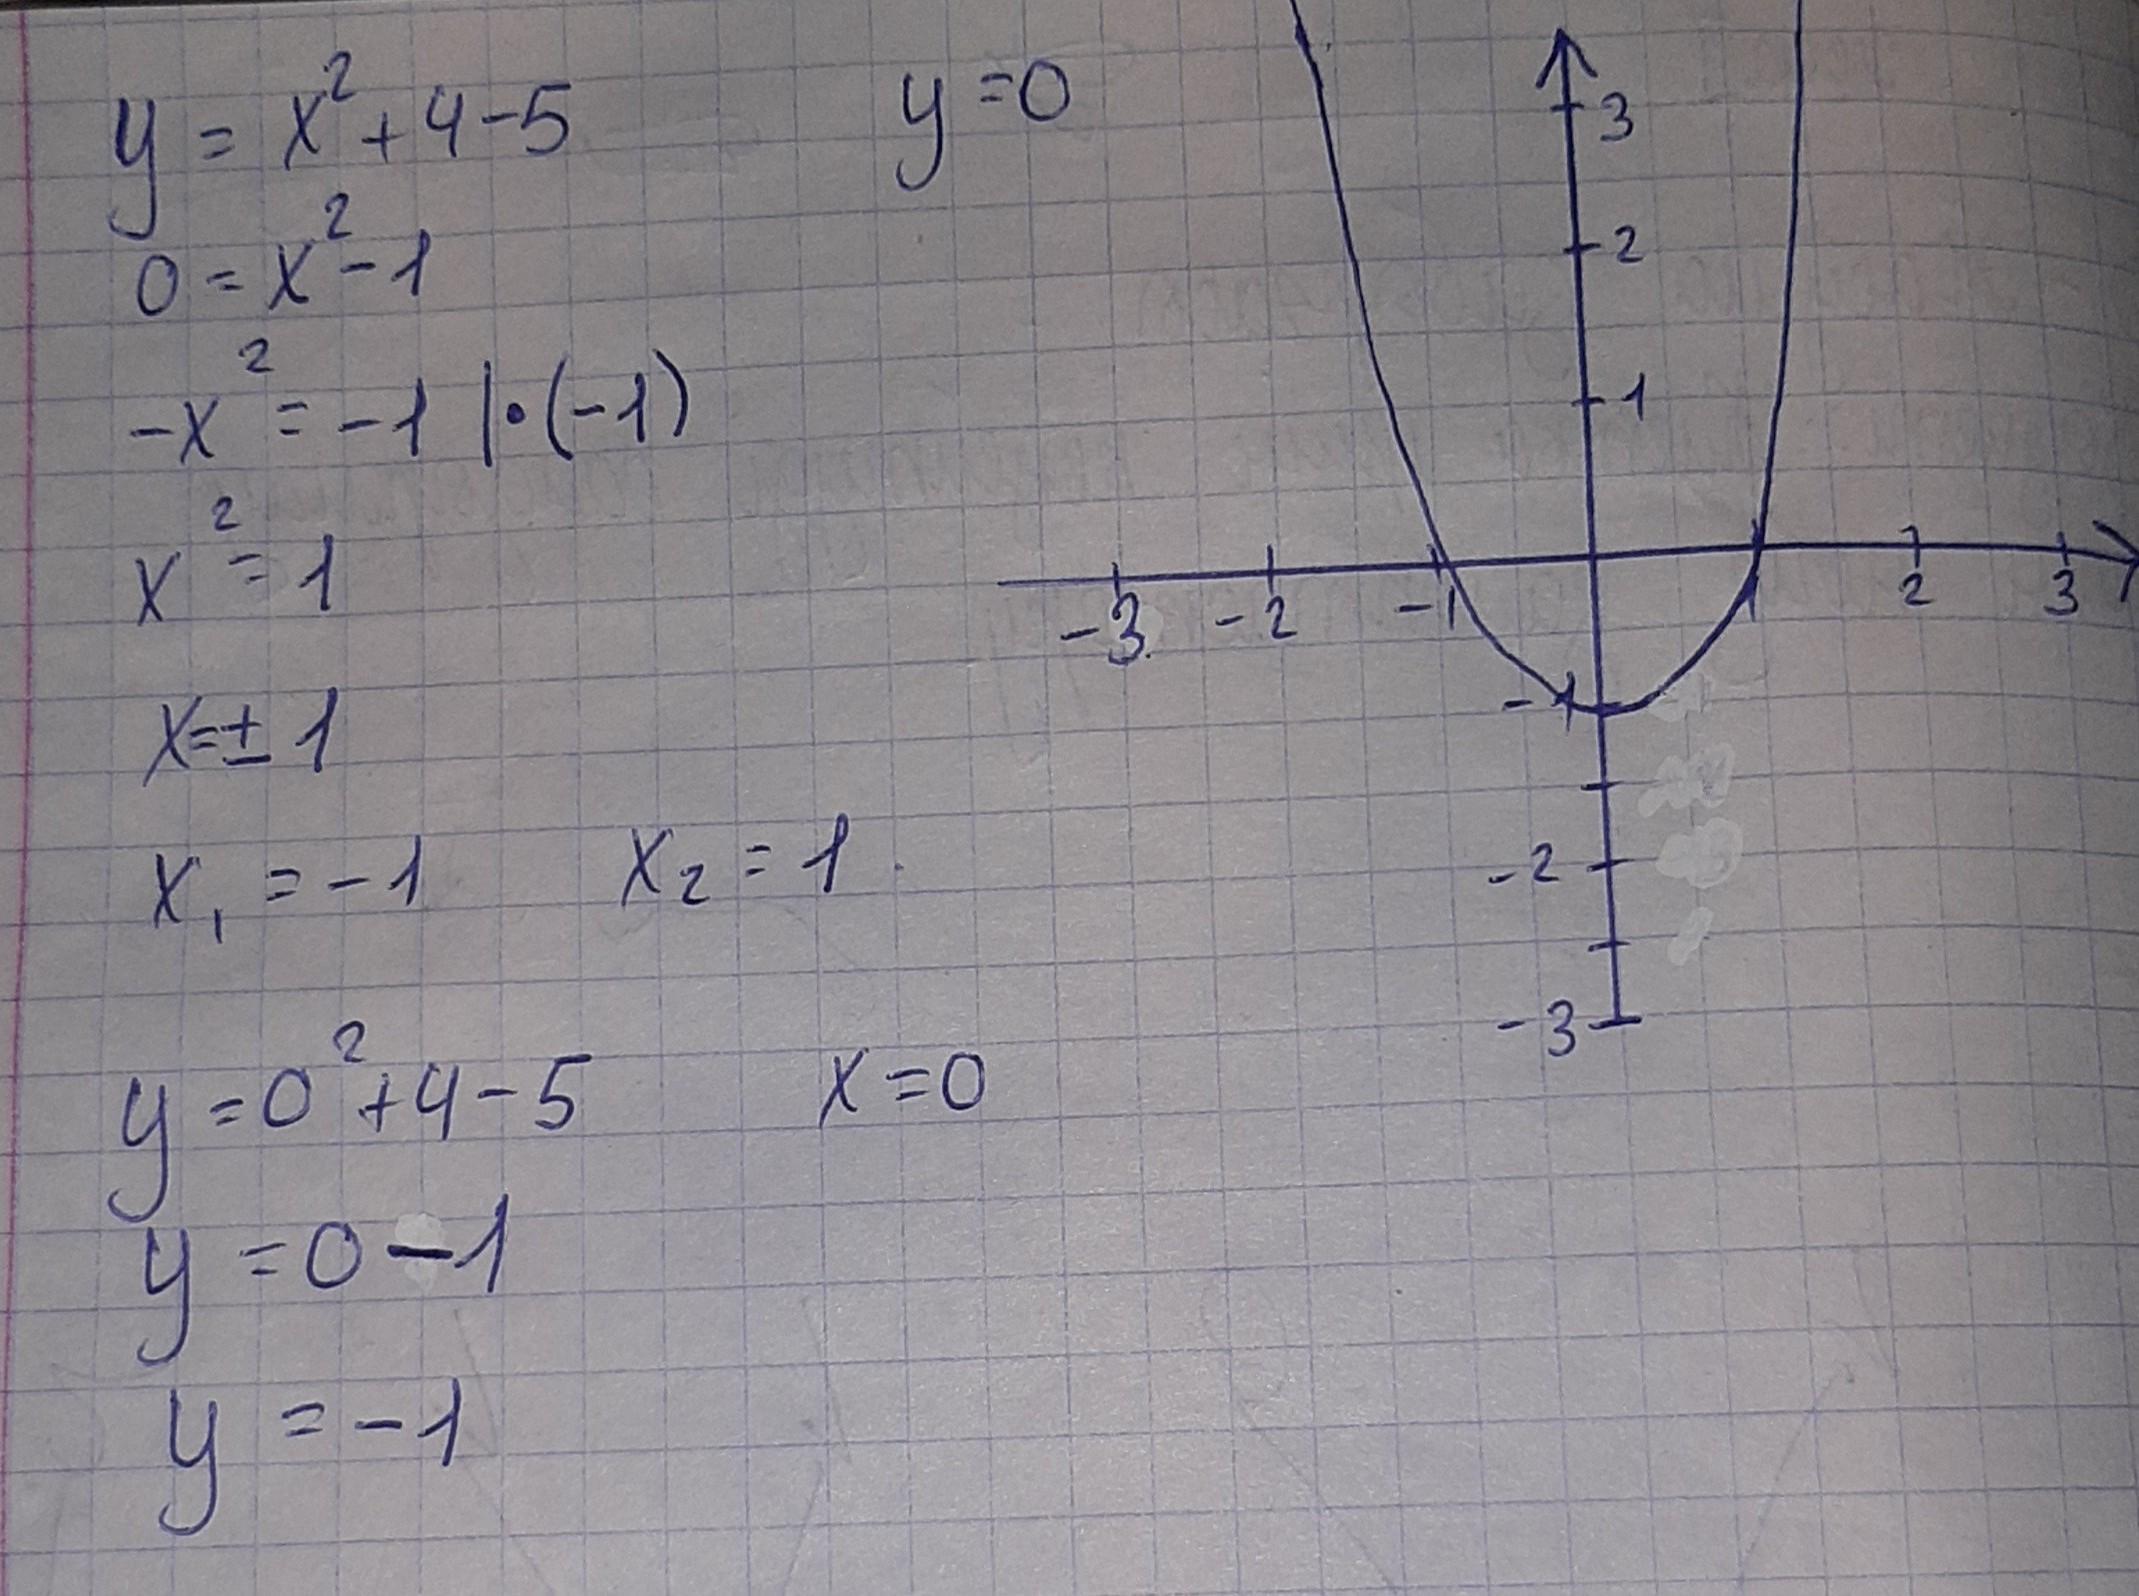 y = x² + 4 - 5 y = 0
0 = x² - 1
-x² = -1 | • (-1)
x² = 1
x = ± 1
x₁ = -1 x₂ = 1
y = 0² + 4 - 5 x = 0
y = 0 - 1
y = -1
3
2
1
-3 -2 -1 1 2 3
-1
-2
-3